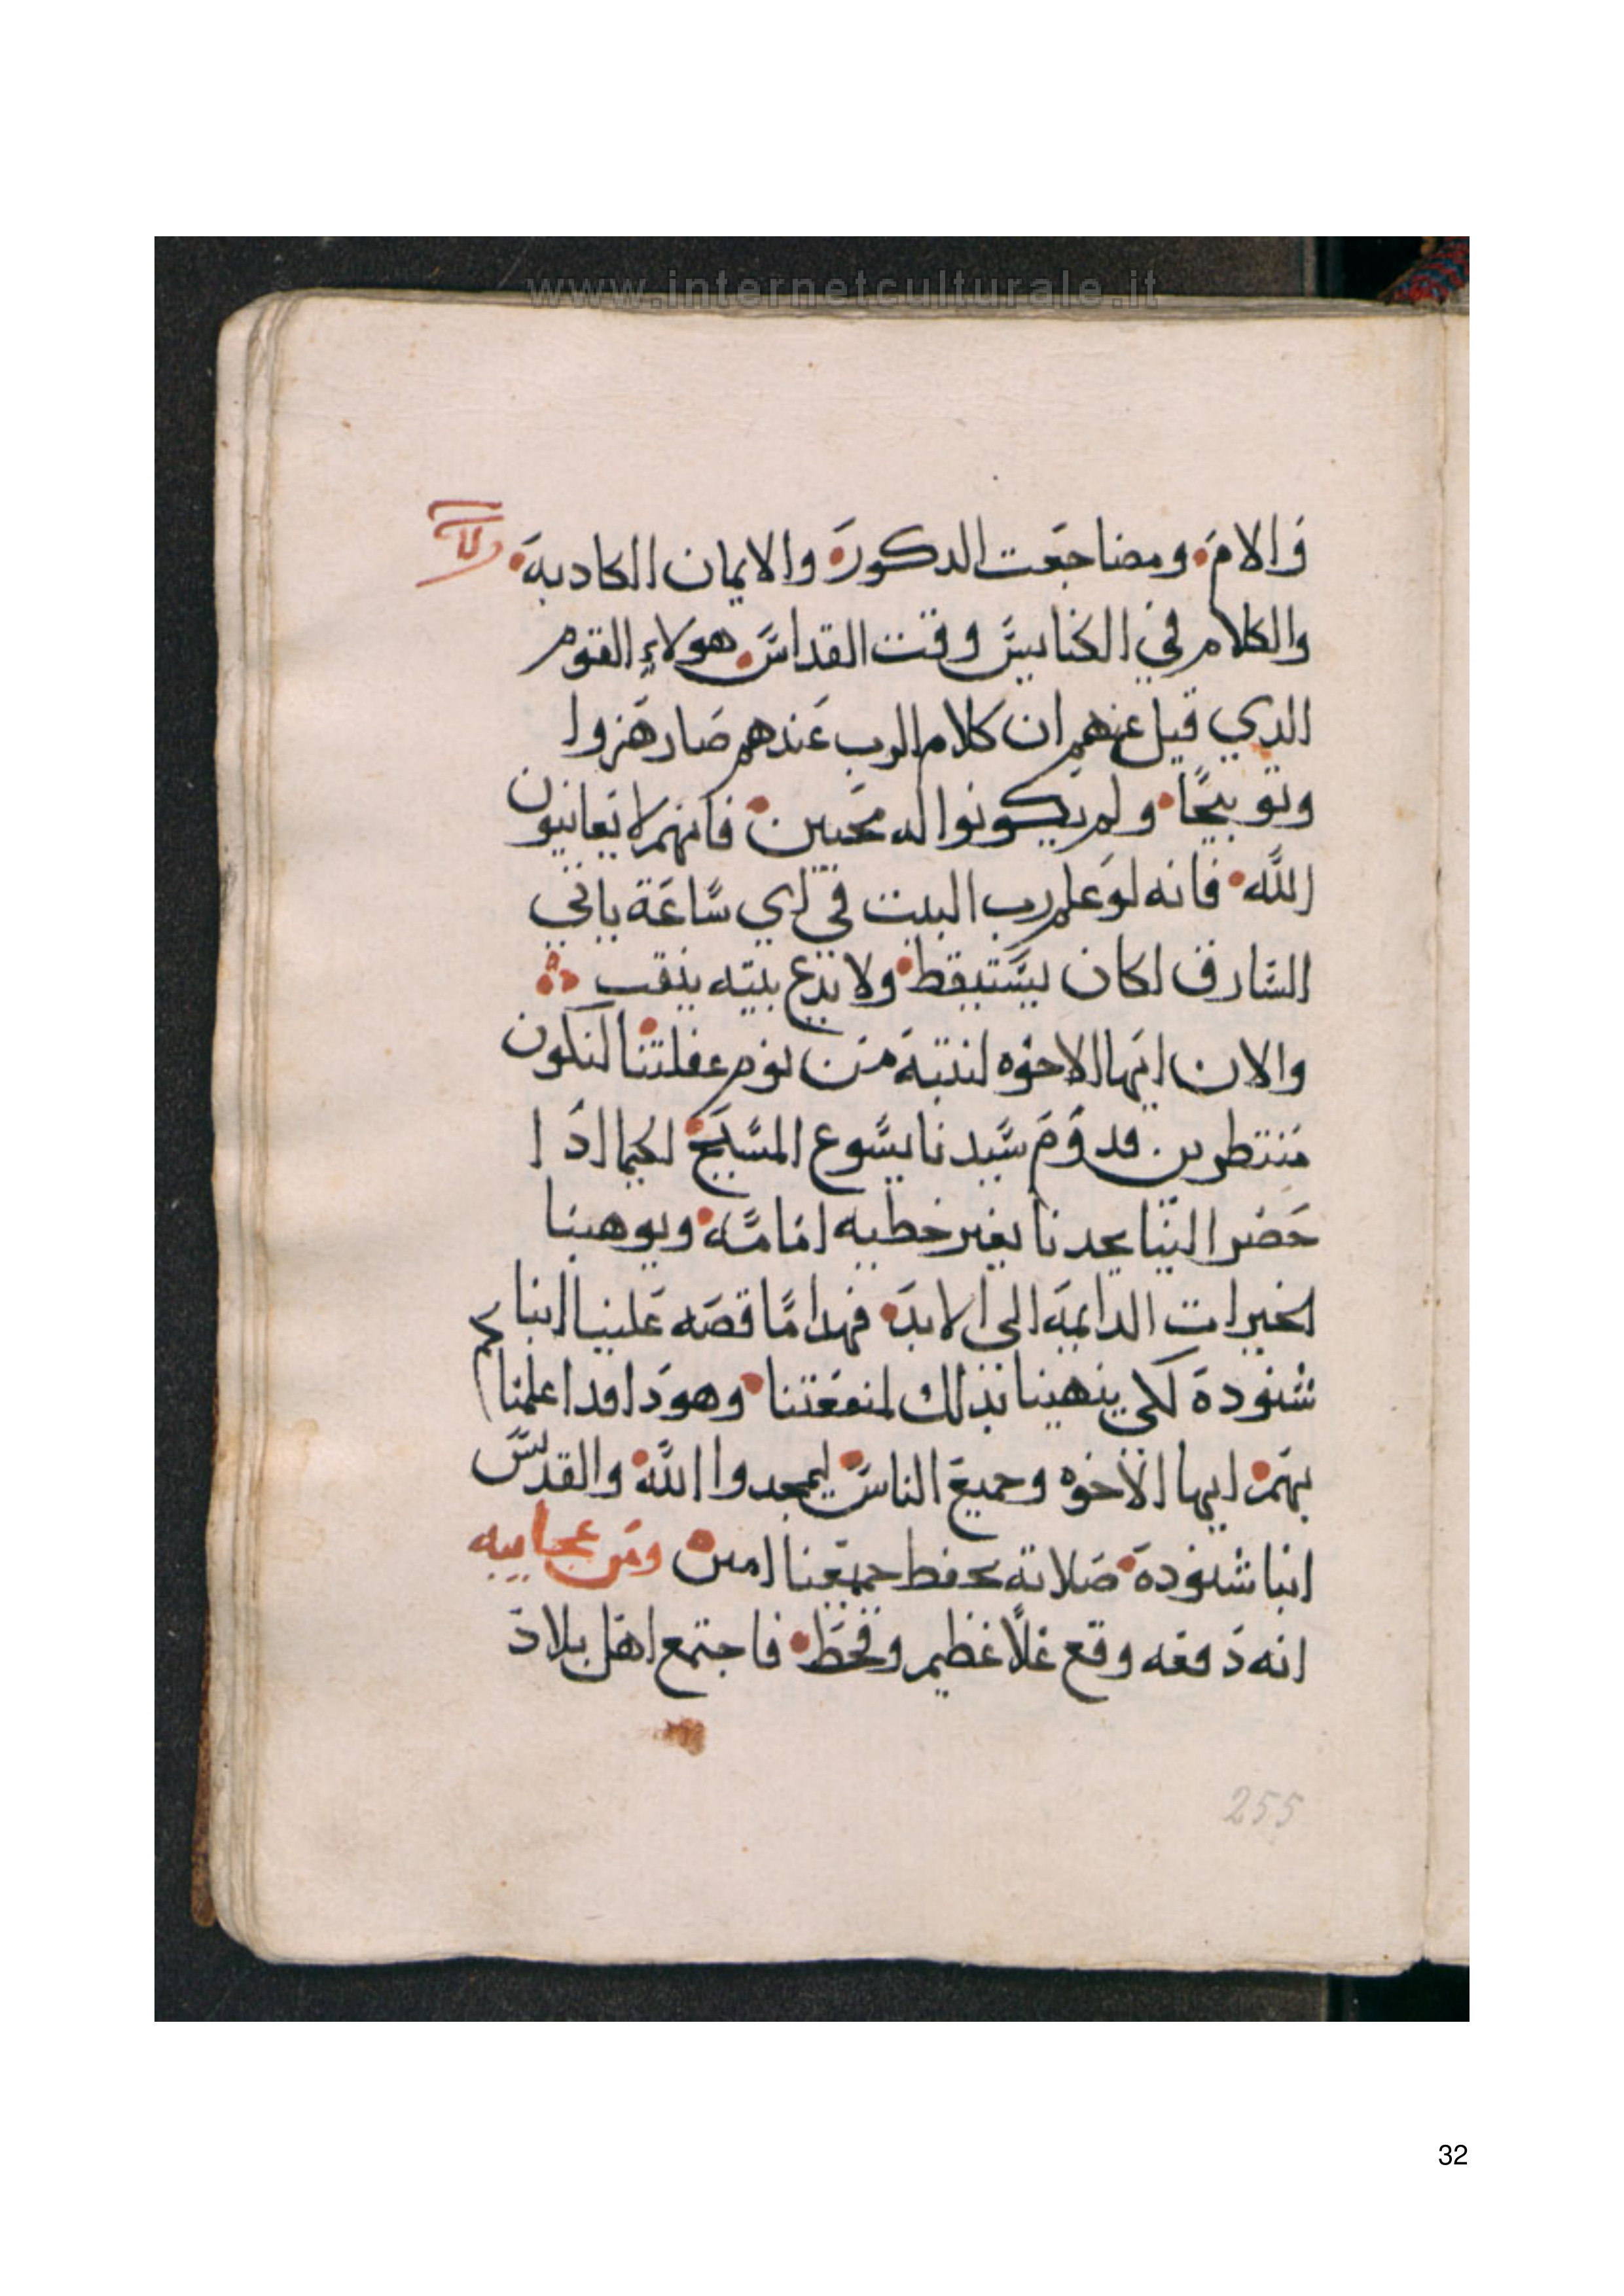 www.internetculturale.it
والامَ. ومضاجعَت الدكورَة والايمان الكادبهَ.
والكلام في الكنايسَ وقت القداسَ. هولاءِ القوم
الدي قيل عنهم ان كلام الرب عَندهم صَار هَزوا
وتوبيخًا. ولم يكونوا له محَبين. فانهم لا يَعانيون
اللَّه. فانه لوَ علم رب البيت في اي سَّاعَة ياتي
السَّارق لكان يسَّتيقط. ولا يدع بيته ينقب ∴
والان ايَها الاخوَه لنتبهَ من نوم غفلتنا. لنكون
مَنتطرين. قدوَمَ سَّيدنا يسَّوع المسَّيحَ. لكيما ادَا
حَضر الينَا يجدنا بغير خطيه امَامَّه. ويوهبنا
الخيرات الدايمهَ الى الابدَ. فهدا مَّا قصَه عَلينا انبا
شنودهَ لكي ينهينا بذلك لمنفعَتنا. وهودَا قد اعلمنا
بهَم. ايها الاخوه وجميعَ الناسَ. ليمجدوا اللَّه. والقدسَّ
انبا شنودهَ. صَلاته تحفط جميعَنا امين. ومَن عجايبه
انه دَفعَه وقع غلاً عَظيم وقحَط. فاجتمع اهَل بلادَ
255
32